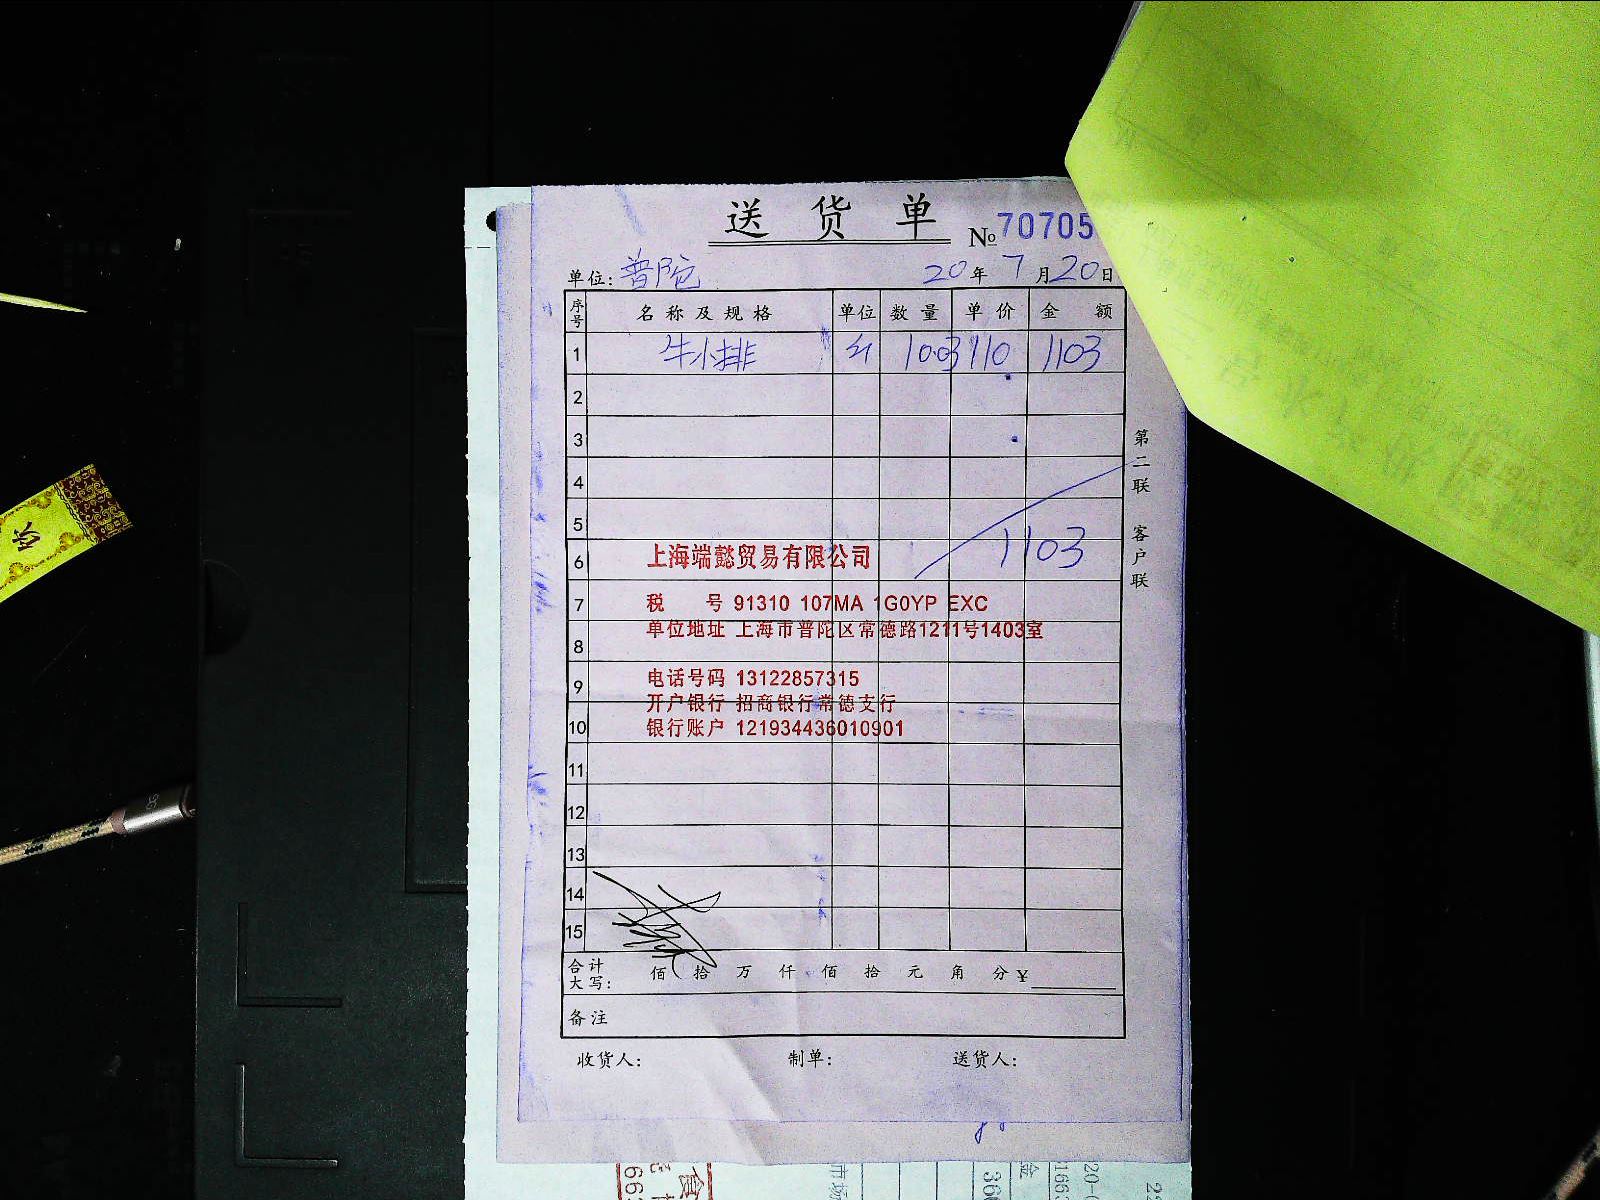 送货单
№70705
单位: 普陀 20年7月20日
序号 名称及规格 单位 数量 单价 金额
1 牛小排 斤 10.03 110 1103
2
3
4
5
1103
6 上海端懿贸易有限公司
7 税 号 91310 107MA 1G0YP EXC
单位地址 上海市普陀区常德路1211号1403室
8
9 电话号码 13122857315
开户银行 招商银行常德支行
10 银行账户 121934436010901
11
12
13
14
15
合计大写: 佰 拾 万 仟 佰 拾 元 角 分 ¥
备注
收货人: 制单: 送货人:
第二联 客户联